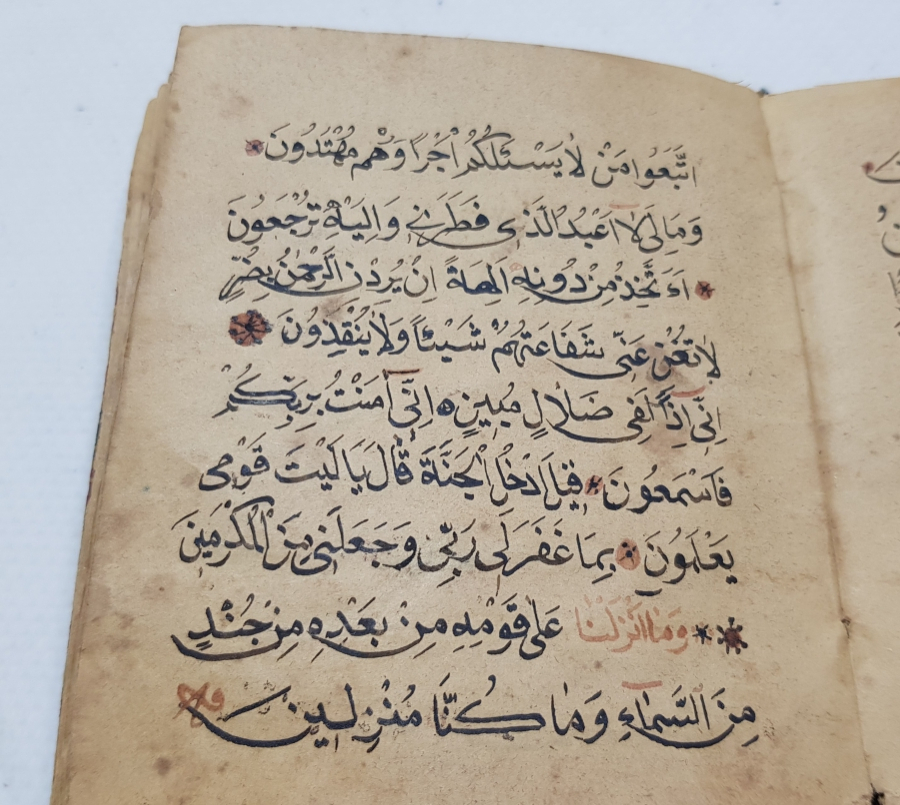 اتَّبَعُوا مَنْ لَا يَسْـَٔلُكُمْ أَجْرًا وَهُمْ مُهْتَدُونَ
وَمَا لِيَ لَا أَعْبُدُ الَّذِي فَطَرَنِي وَإِلَيْهِ تُرْجَعُونَ
ءَاَتَّخِذُ مِنْ دُونِهِ آلِهَةً إِنْ يُرِدْنِ الرَّحْمٰنُ بِضُرٍّ
لَا تُغْنِ عَنِّي شَفَاعَتُهُمْ شَيْئًا وَلَا يُنْقِذُونَ
إِنِّي إِذًا لَفِي ضَلَالٍ مُبِينٍ ه إِنِّي آمَنْتُ بِرَبِّكُمْ
فَاسْمَعُونَ قِيلَ ادْخُلِ الْجَنَّةَ قَالَ يَا لَيْتَ قَوْمِي
يَعْلَمُونَ بِمَا غَفَرَ لِي رَبِّي وَجَعَلَنِي مِنَ الْمُكْرَمِينَ
وَمَا أَنْزَلْنَا عَلَى قَوْمِهِ مِنْ بَعْدِهِ مِنْ جُنْدٍ
مِنَ السَّمَاءِ وَمَا كُنَّا مُنْزِلِينَ